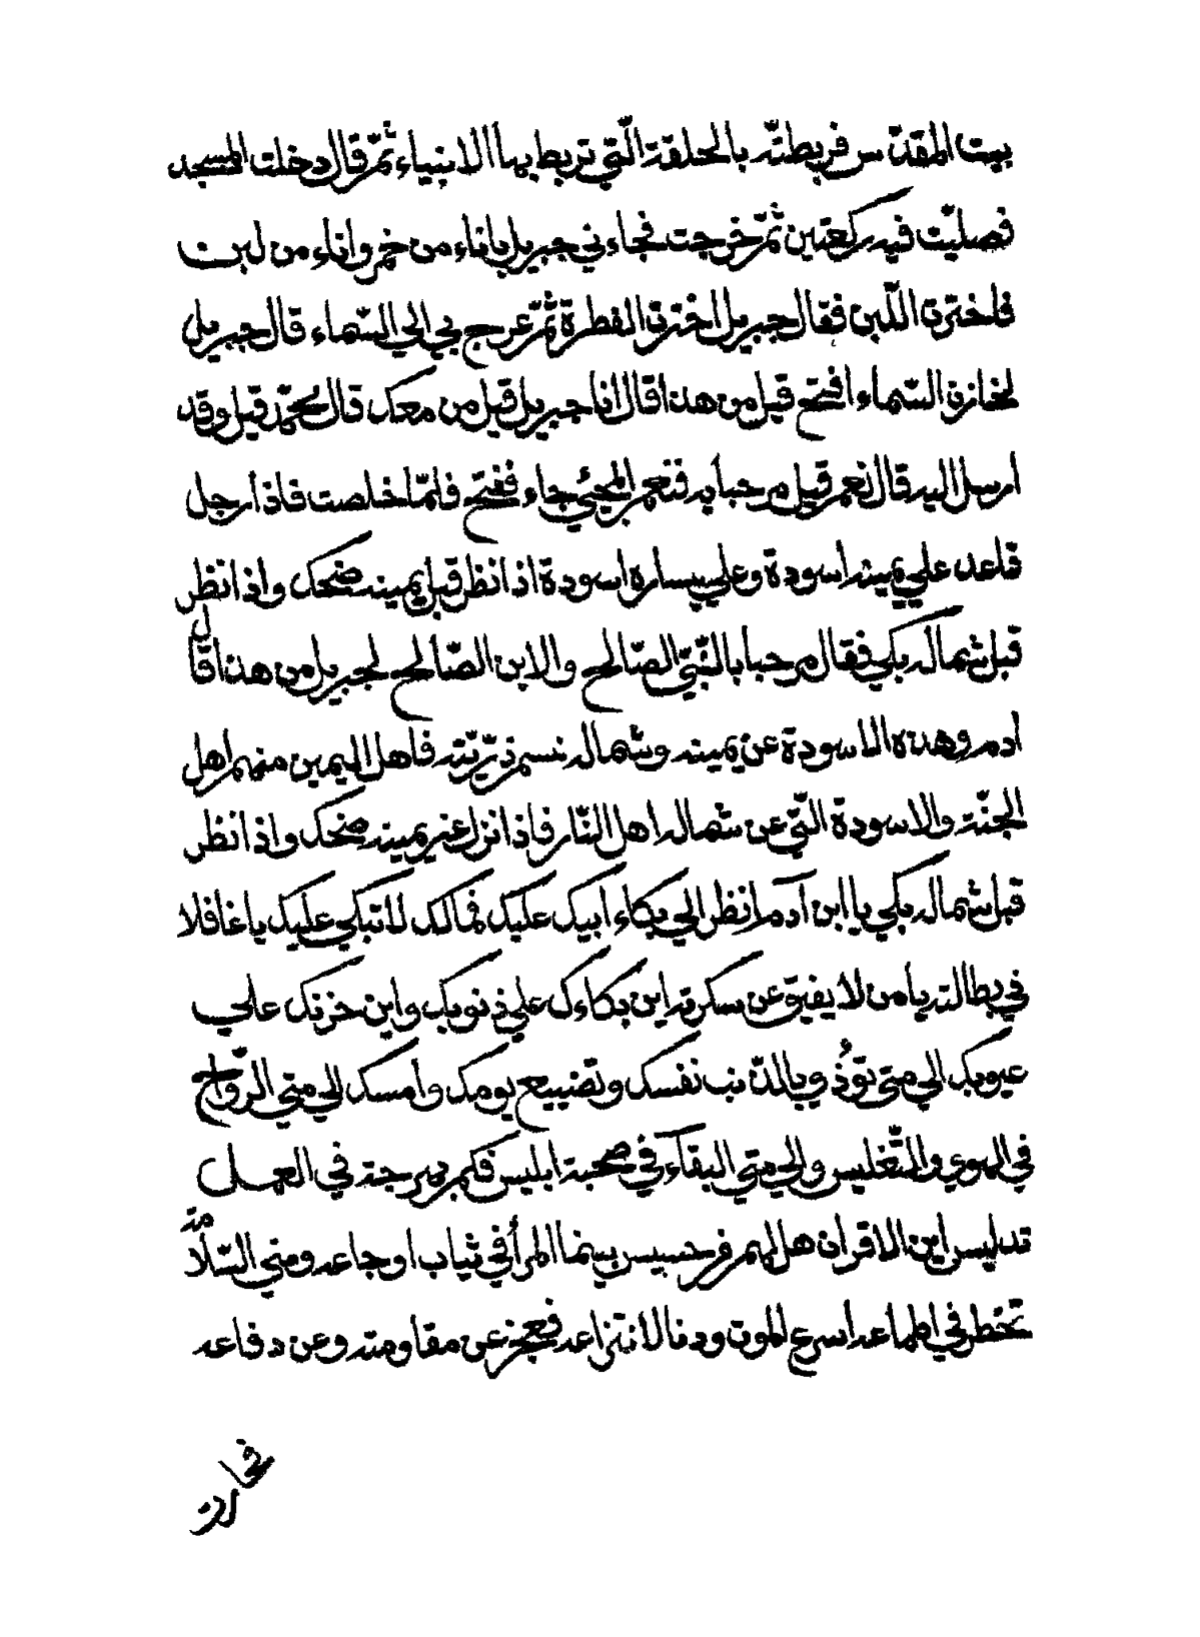 بيت المقدّس فربطتّه بالحلقة الّتي تربط بها الانبياء ثمّ قال دخلت المسجد
فصليّت فيه ركعتين ثمّ خرجت فجاءني جبريل باناء من خمر واناء من لبن
فاخترت اللّبن فقال جبريل اخترت الفطرة ثمّ عرج بي الي السّماء قال جبريل
لخازن السّماء افتح قيل من هذا قال انا جبريل قيل من معك قال محمّد قيل وقد
ارسل اليه قال نعم قيل مرحبا به فنعم المجيئي جاء ففتح فلمّا خلصت فاذا رجل
قاعد علي يمينه اسودة وعلي يساره اسودة اذا نظر قبل يمينه ضحك واذا نظر
قبل شماله بكي فقال مرحبا بالنّبيّ الصّالح والابن الصّالح لجبريل من هذا قال
ادم وهذه الاسودة عن يمينه وشماله نسم ذرّيّته فاهل اليمين منهم اهل
الجنّة والاسودة الّتي عن شماله اهل النّار فاذا نزل عن يمينه ضحك واذا نظر
قبل شماله بكي يا ابن آدم انظر الي بكاء ابيك عليك فمالك لا تبكي عليك يا غافلا
في بطالته يا من لا يفيق عن سكرته اين بكاءك علي ذنوبك واين حزنك علي
عيوبك الي متي تؤذي بالذّنب نفسك وتضييع يومك وأمسك الي متي الرّواح
في الهوي والتّغليس والي متي البقآء في صحبة ابليس فكم بهرجة في العمل
تدليس اين الاقران هل لهم من حسيس بينما المرأ في ثياب اوجاعه ومني السّلامة
تخطر في اطماعه اسرع الموت ودنا لانتزاعه فعجز عن مقاومته وعن دفاعه